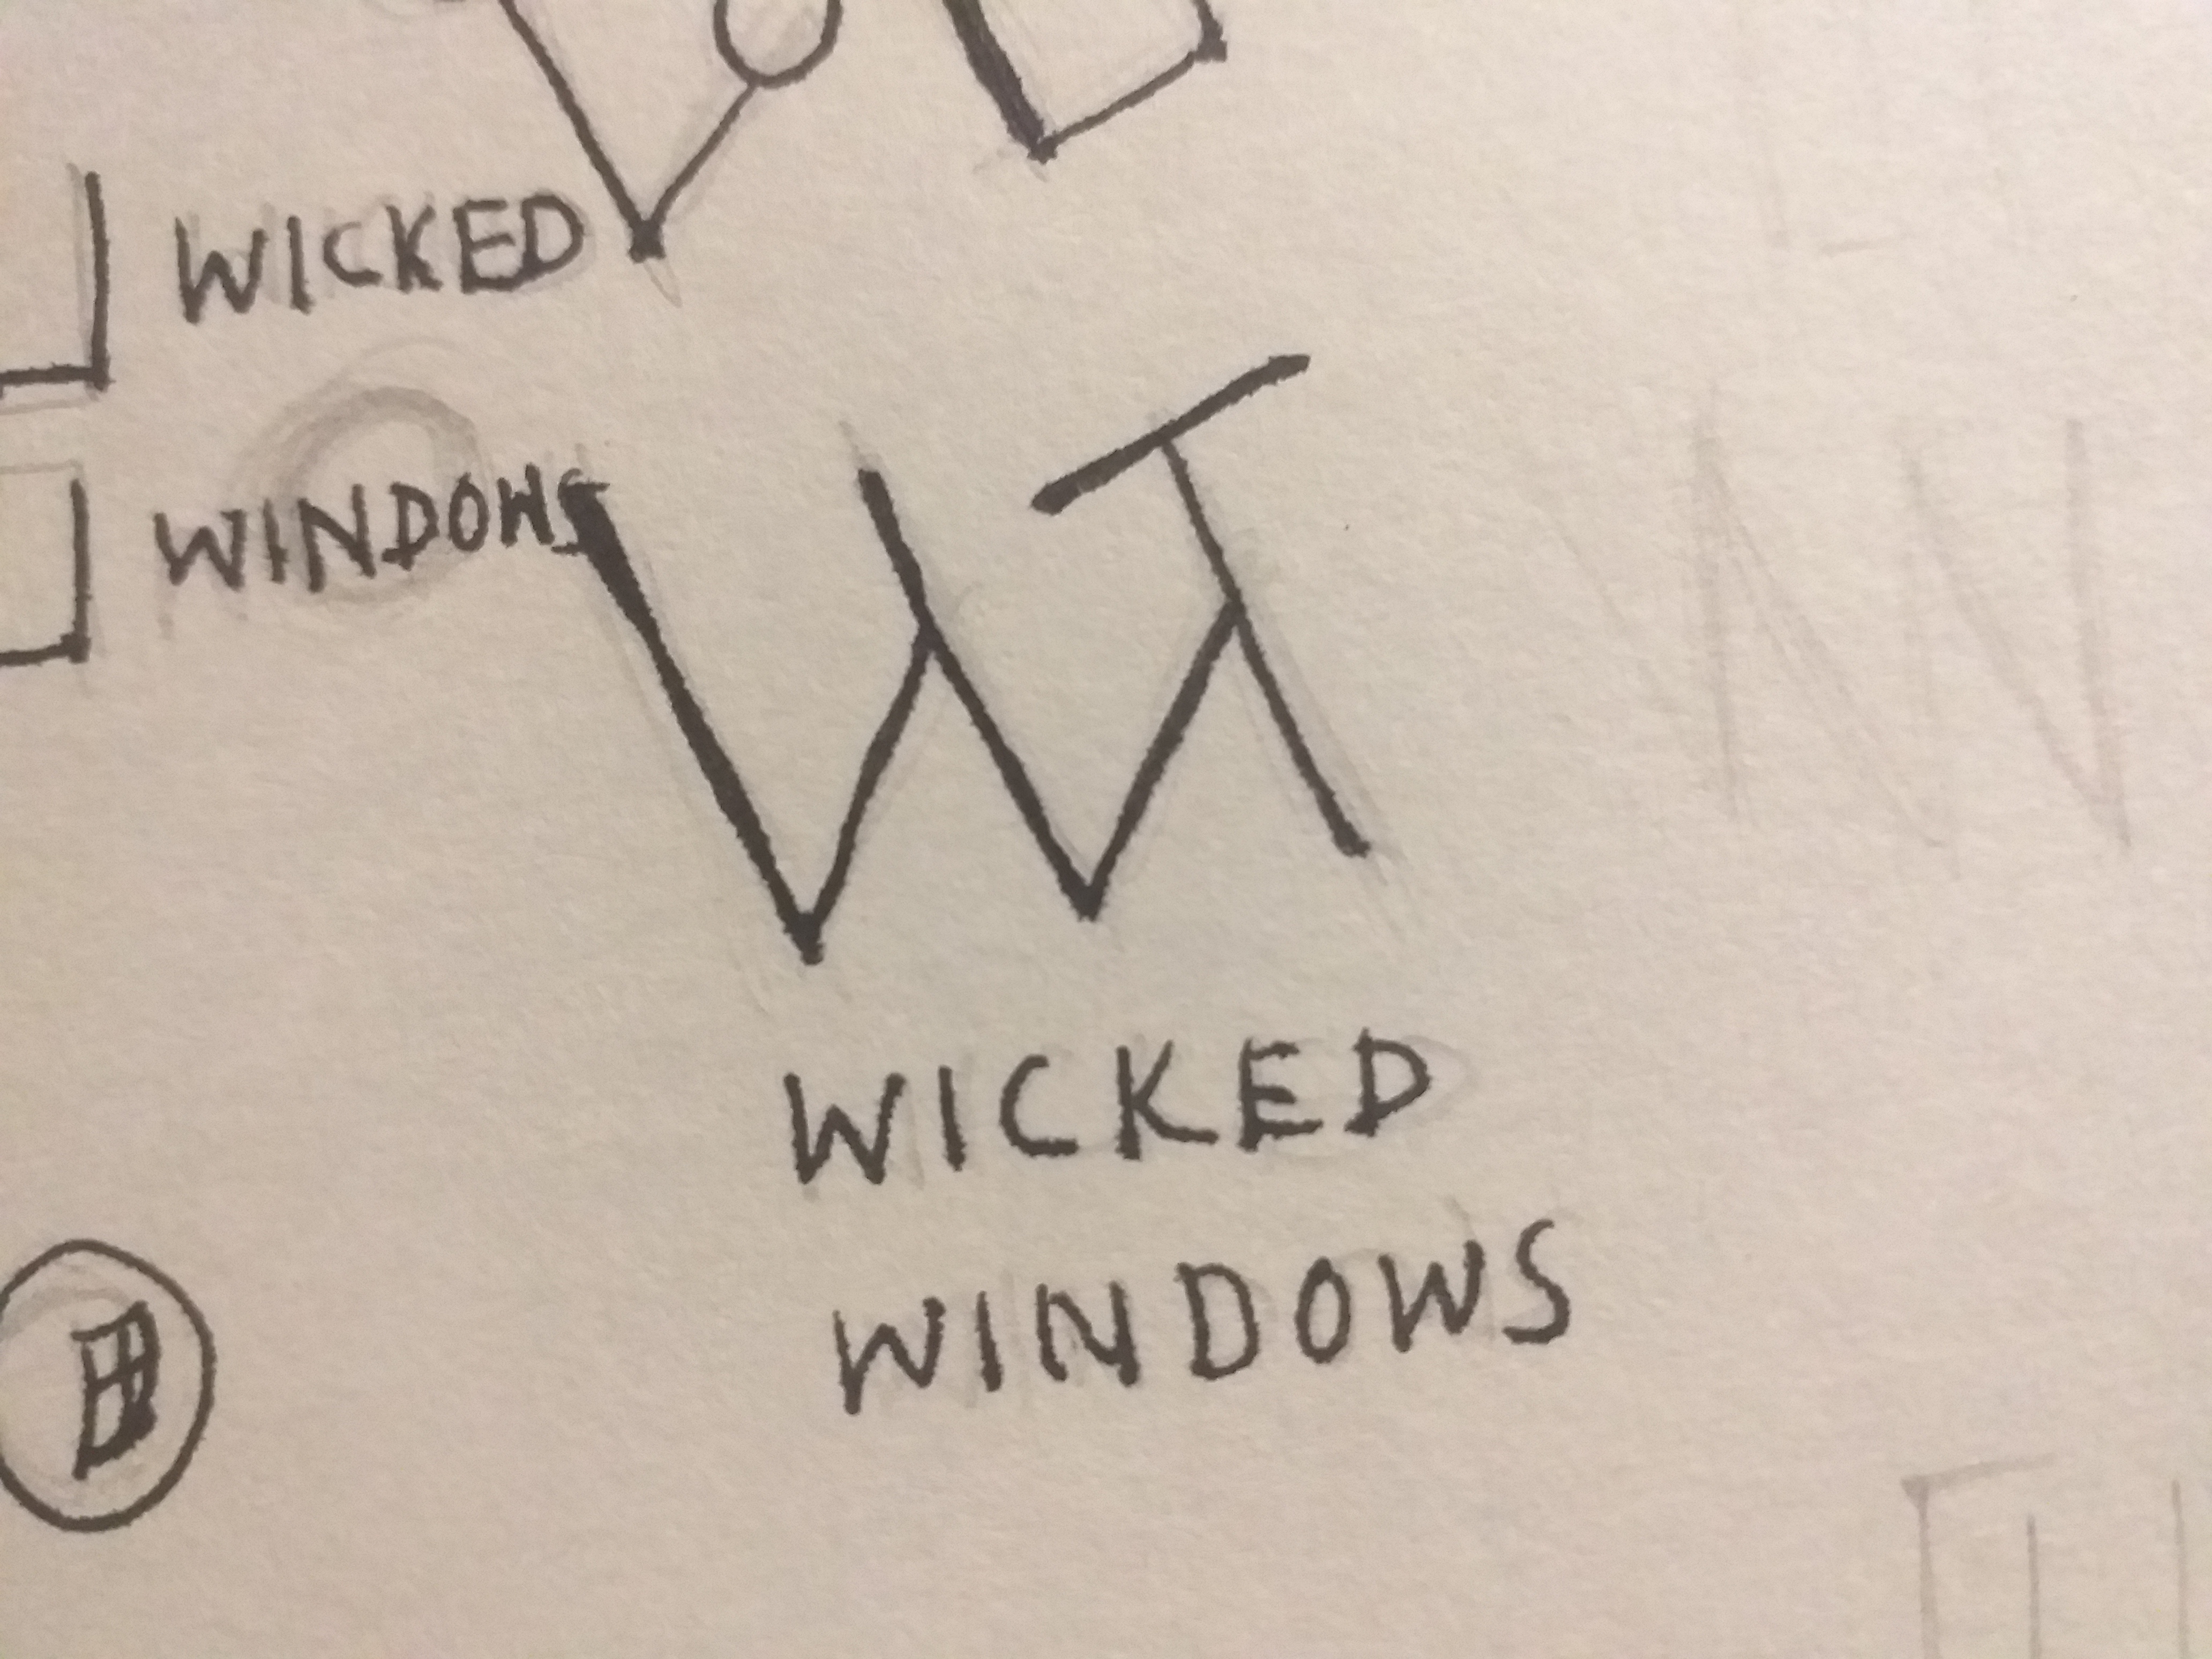 WICKED
WINDOWS
W
WICKED
WINDOWS